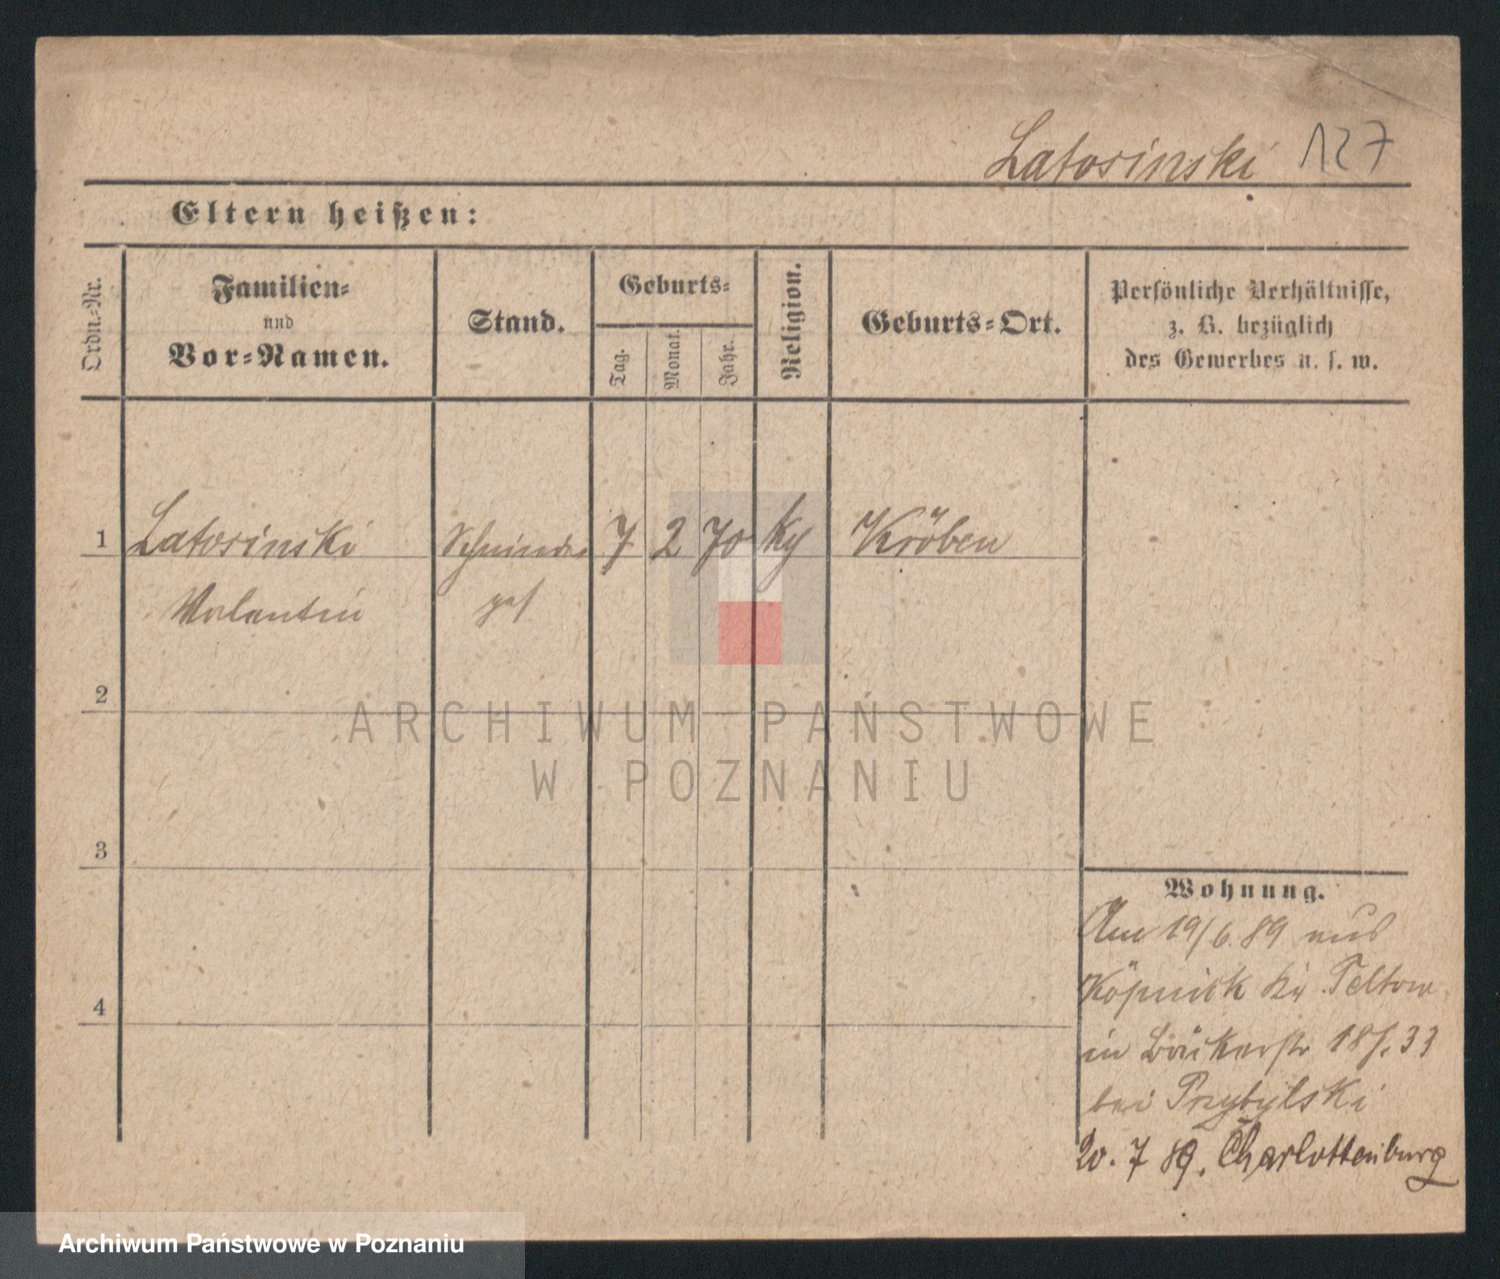 Latosinski 127
Eltern heißen:
Ordn.-Nr.
Familien-
und
Vor-Namen.
Stand.
Geburts-
Tag.
Monat.
Jahr.
Religion.
Geburts-Ort.
Persönliche Verhältnisse,
z. B. bezüglich
des Gewerbes u. s. w.
1 Latosinski Schneider 7 2 70 ky Kröben
Valentin ges
2
3
4
Wohnung.
Am 19/6. 89 aus
Köpnick Kr Teltow
in Bäckerstr 18/. 33
bei Przybylski
20. 7 89. Charlottenburg
ARCHIWUM PAŃSTWOWE
W POZNANIU
Archiwum Państwowe w Poznaniu